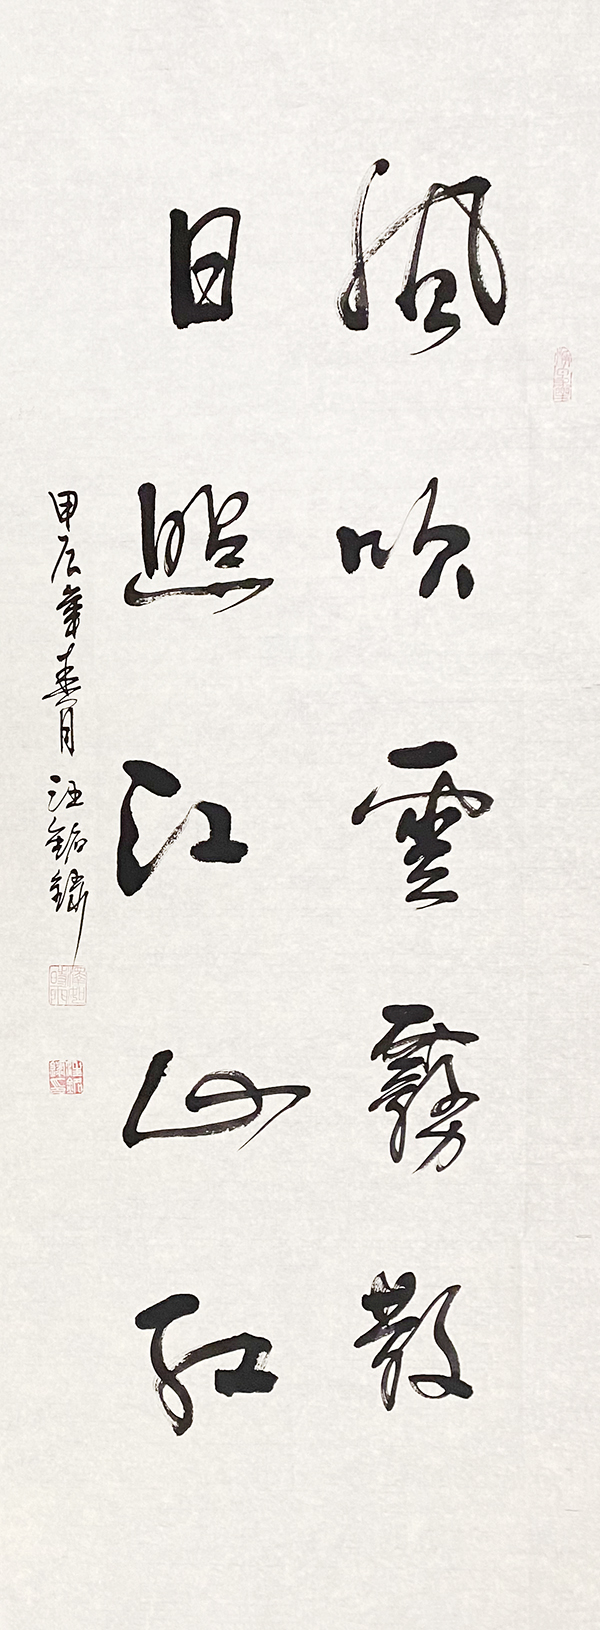 風吹雲霧散
日照江山紅
甲辰年春月汪銘鏽